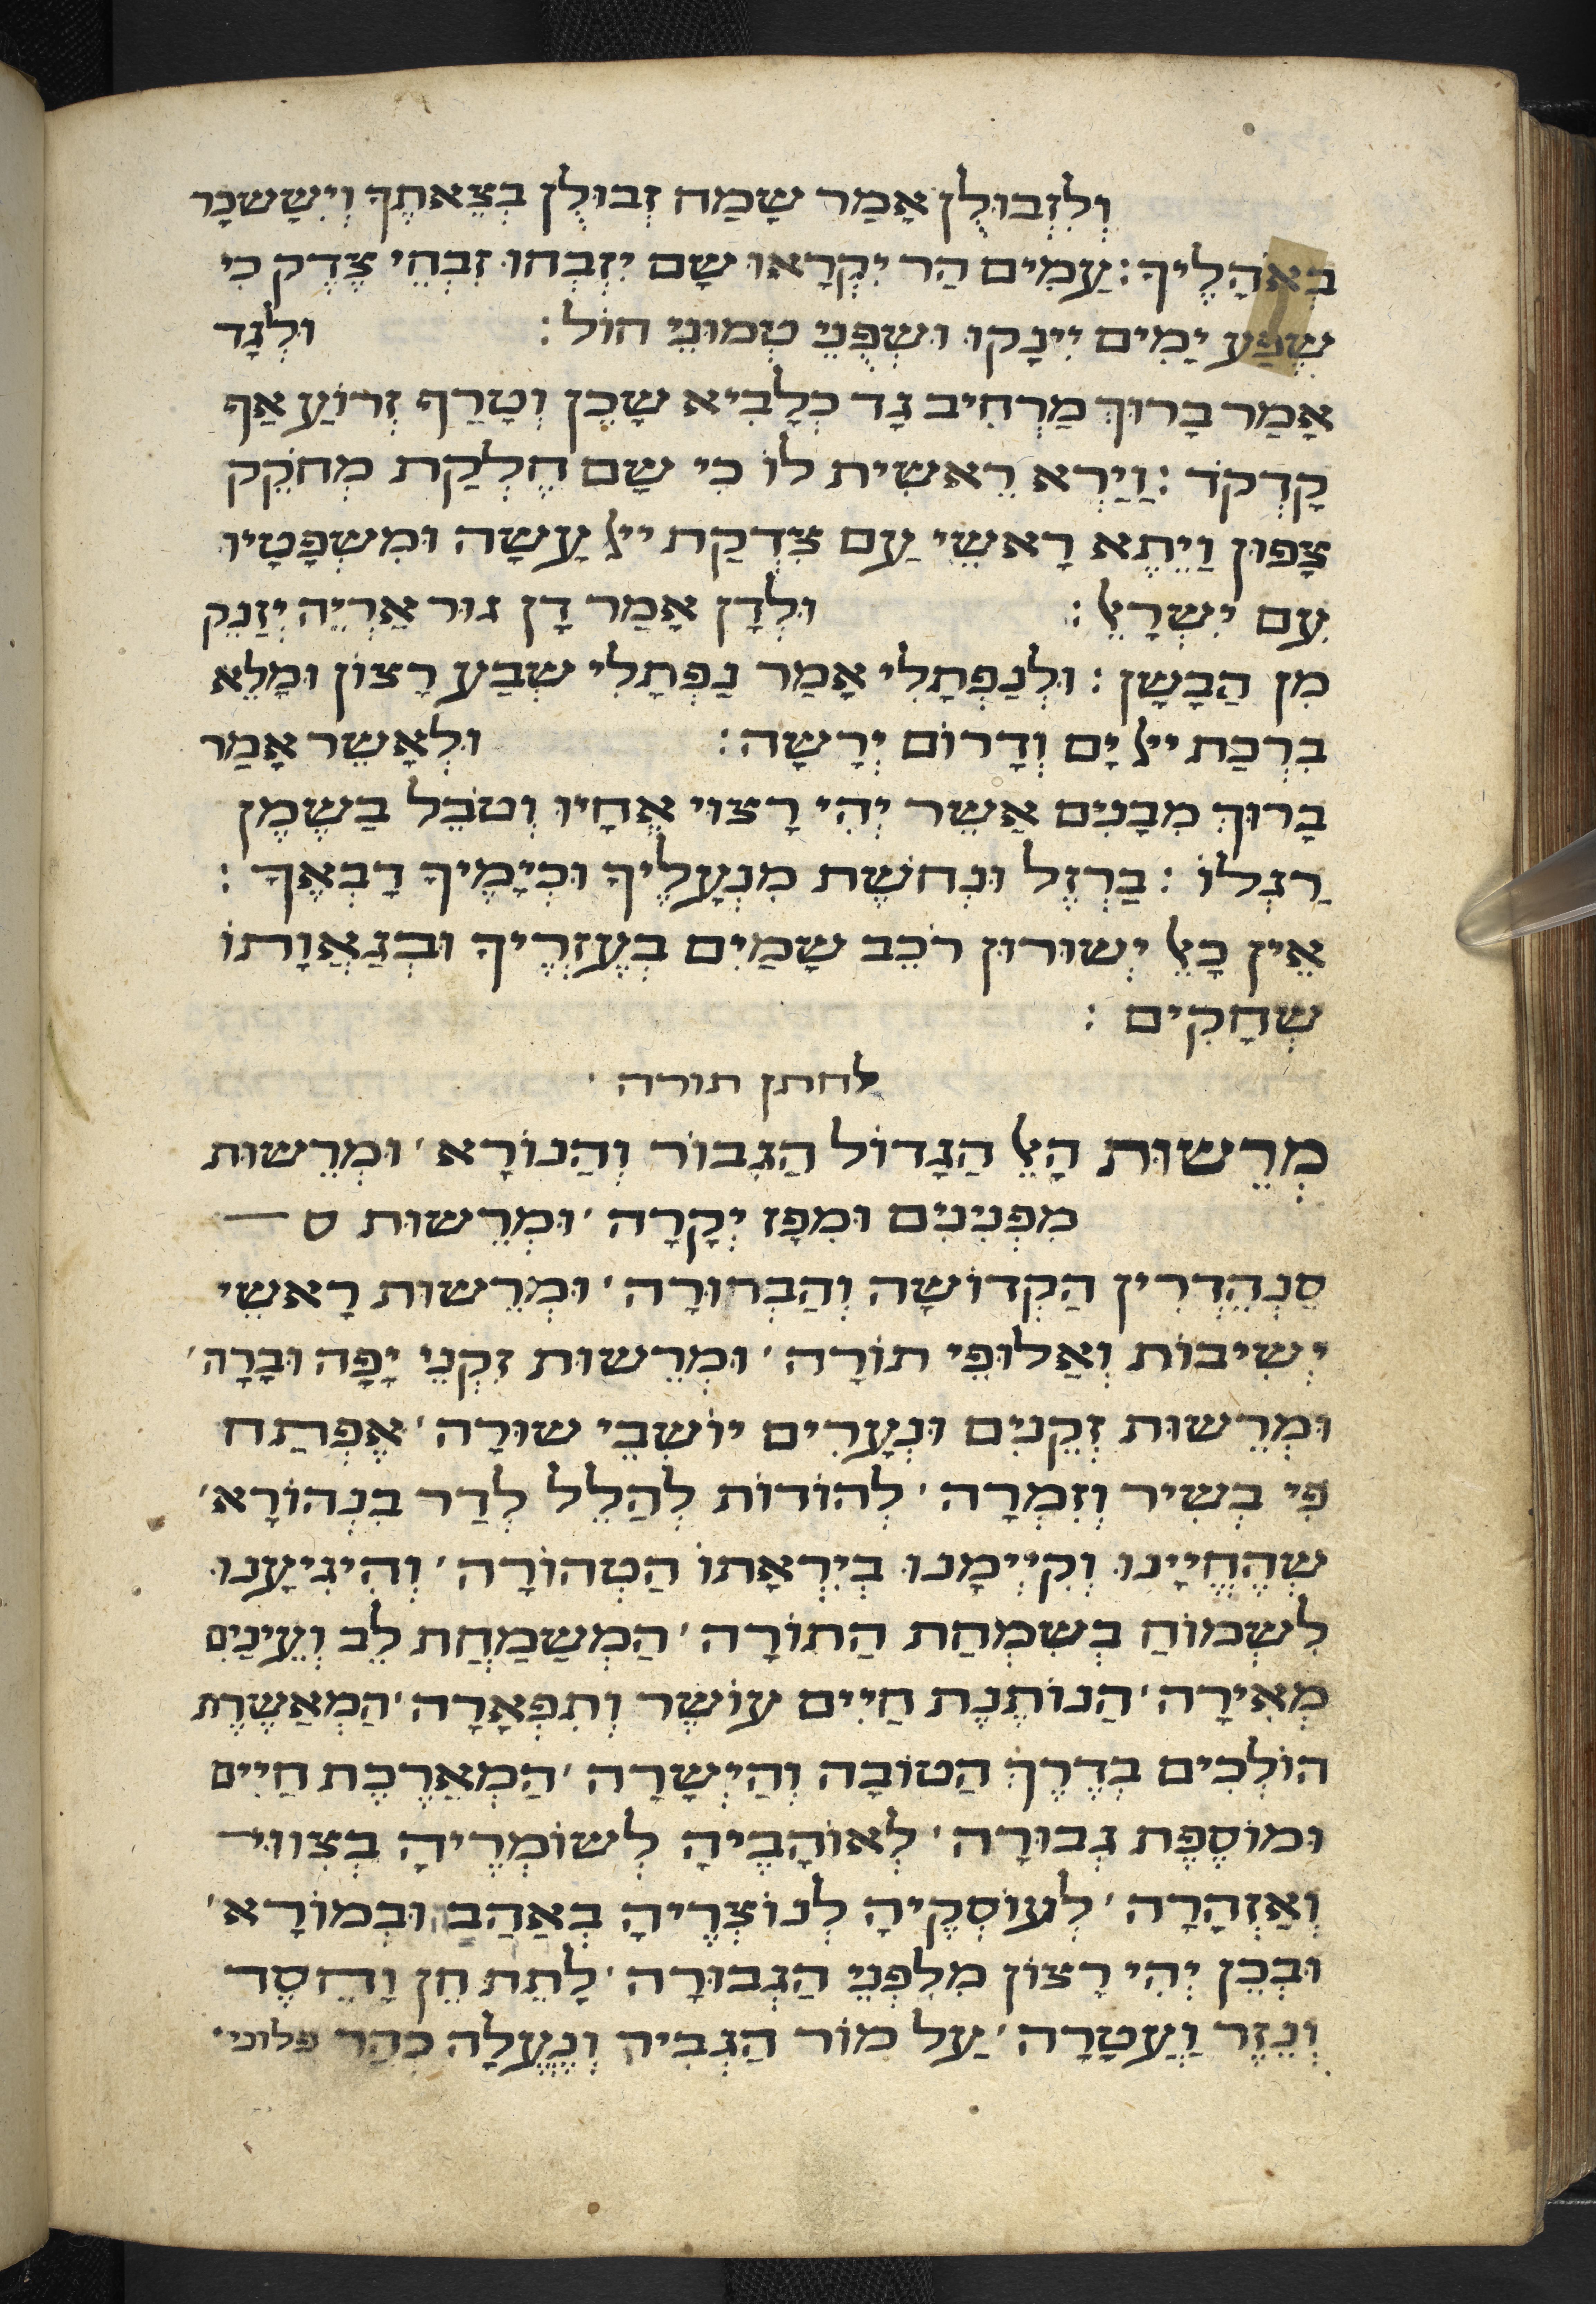 וְלִזְבוּלֻן אָמַר שָמַח זְבוּלֻן בְצֵאתֶךָ וְיִשָשכָר
בְאֹהָלֶיךָ : עַמִים הַר יִקְרָאוּ שָם יִזְבְחוּ זִבְחֵי צֶדֶק כִי
שֶפַע יָמִים יִינָקוּ וּשְפֻנֵי טְמוּנֵי חוֹל : וּלְגָד
אָמַר בָרוּךְ מַרְחִיב גָד כְלָבִיא שָכֵן וְטָרַף זְרוֹעַ אַף
קָדְקֹד : וַיַרְא רֵאשִית לוֹ כִי שָם חֶלְקַת מְחֹקֵק
צָפוּן וַיֵתֶא רָאשֵי עַם צִדְקַת ייי עָשָה וּמִשְפָטָיו
עִם יִשְרָאֵל : וּלְדָן אָמַר דָן גוּר אַרְיֵה יְזַנֵק
מִן הַבָשָן : וּלְנַפְתָלִי אָמַר נַפְתָלִי שְבַע רָצוֹן וּמָלֵא
בִרְכַת ייי יָם וְדָרוֹם יְרָשָה : וּלְאָשֵר אָמַר
בָרוּךְ מִבָנִים אָשֵר יְהִי רָצוּי אֶחָיו וְטֹבֵל בַשֶמֶן
רַגְלוֹ : בַרְזֶל וּנְחשֶת מִנְעָלֶיךָ וּכְיָמֶיךָ דָבְאֶךָ :
אֵין כָאֵל יְשוּרוּן רֹכֵב שָמַיִם בְעֶזְרֶיךָ וּבְגַאֲוָתוֹ
שְחָקִים :
לחתן תורה
מְרֵשוּת הָאֵל הַגָדוֹל הַגִבוֹר וְהַנוֹרָא ׳ וּמְרֵשוּת
מִפְנִינִים וּמִפָז יְקָרָה ׳ וּמְרֵשוּת ס
סַנְהֶדְרִין הַקְדוֹשָה וְהַבְחוּרָה ׳ וּמְרֵשוּת רָאשֵי
יְשִיבוֹת וְאַלוּפֵי תוֹרָה ׳ וּמְרֵשוּת זִקְנֵי יָפָה וּבָרָה ׳
וּמְרֵשוּת זְקֵנִים וּנְעָרִים יוֹשְבֵי שוּרָה ׳ אֶפְתַח
פִי בְשִיר וְזִמְרָה ׳ לְהוֹדוֹת לְהַלֵל לְדַר בִנְהוֹרָא ׳
שְהֶחֱיָינוּ וְקִיְימָנוּ בְיִרְאָתוֹ הַטְהוֹרָה ׳ וְהִיגִיעָנוּ
לִשְמוֹחַ בְשִמְחַת הַתוֹרָה ׳ הַמְשַמַחֲת לֵב וְעֵינַיִם
מְאִירָה ׳ הַנוֹתֶנֶת חַיִים עוֹשֶר וְתִפְאָרָה ׳ הַמְאַשֶרֶת
הוֹלְכִים בְדֶרֶךְ הַטוֹבָה וְהַיְשָרָה ׳ הַמְאַרֶכֶת חַיִים
וּמוֹסֶפֶת גְבוּרָה ׳ לְאוֹהֲבֶיהָ לְשוֹמְרֶיהָ בְצִוּוּי
וְאַזְהָרָה ׳ לְעוֹסְקֶיהָ לְנוֹצְרֶיהָ בְאַהֲבַ וּבְמוֹרָא ׳
וּבְכֵן יְהִי רָצוֹן מִלִפְנֵי הַגְבוּרָה ׳ לָתֵת חֵן וָחֶסֶד
וְנֵזֶר וַעֲטָרָה ׳ עַל מוֹר הַגְבִיר וְנֶעֱלָה כְהַר פלוני